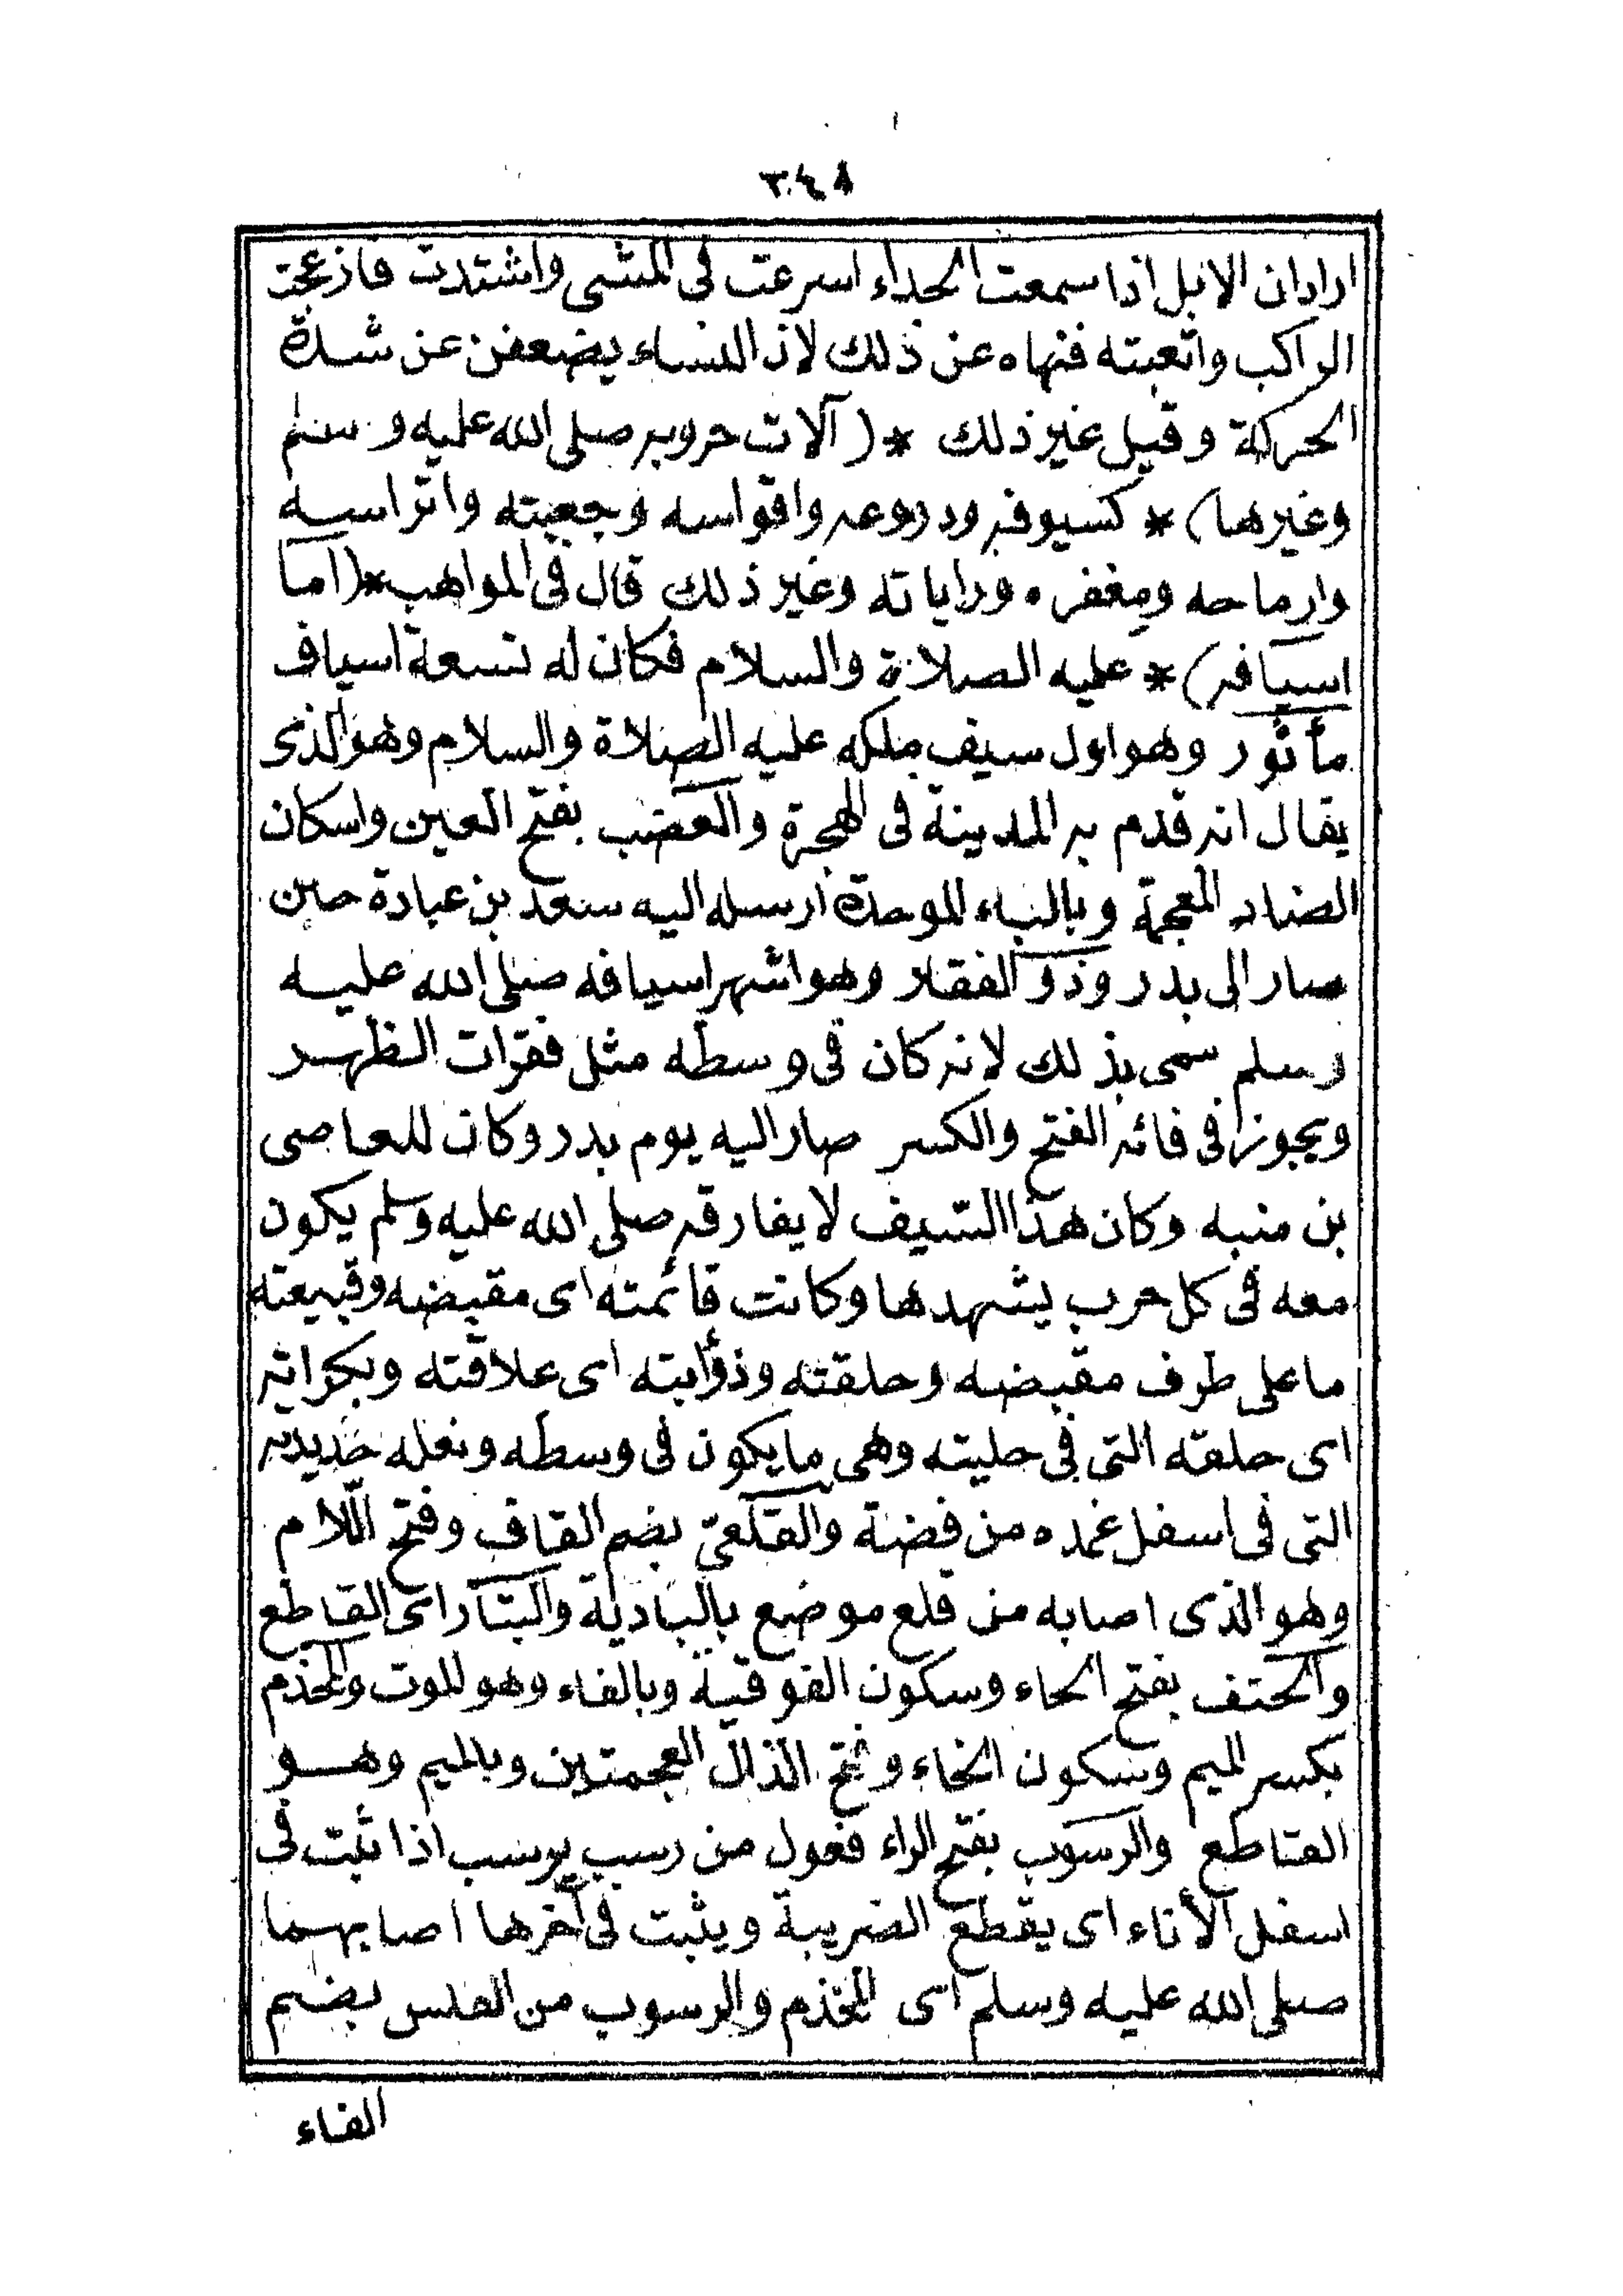 ٣٤٨
اراد ان الابل اذا سمعت الحداء اسرعت فى المشى واشتدت فازعجت
الراكب واتعبته فنهاه عن ذلك لان النساء يضعفن عن شدة
الحركة وقيل غير ذلك * ( آلات حروبه صلى الله عليه وسلم
وغيرها) * كسيوفه ودروعه واقواسه وجعبته واتراسه
وارماحه ومغفره وراياته وغير ذلك قال فى المواهب *(اما
اسيافه) * عليه الصلاة والسلام فكان له تسعة اسياف
مأثور وهو اول سيف ملكه عليه الصلاة والسلام وهو الذى
يقال انه قدم به المدينة فى الهجرة والعضب بفتح العين واسكان
الضاد المعجمة وبالباء الموحدة ارسله اليه سعد بن عبادة حين
سار الى بدر وذو الفقار وهو اشهر اسيافه صلى الله عليه
وسلم سمى بذلك لانه كان فى وسطه مثل فقرات الظهر
ويجوز فى فائه الفتح والكسر صار اليه يوم بدر وكان للعاصى
بن منبه وكان هذا السيف لا يفارقه صلى الله عليه وسلم يكون
معه فى كل حرب يشهدها وكانت قائمته اى مقبضه وقبيعته
ما على طرف مقبضه وحلقته وذؤابته اى علاقته وبكراته
اى حلقه التى فى حليته وهى ما يكون فى وسطه ونعله حديدته
التى فى اسفل غمده من فضة والقلعىّ بضم القاف وفتح اللام
وهو الذى اصابه من قلع موضع بالبادية والبتار اى القاطع
والحتف بفتح الحاء وسكون الفوقية وبالفاء وهو الموت والمخذم
بكسر الميم وسكون الخاء وفتح الذال العجمتين وبالميم وهو
القاطع والرسوب بفتح الراء فعول من رسب يرسب اذا ثبت فى
اسفل الأناء اى يقطع الضريبة ويثبت فى آخرها اصابهما
صلى الله عليه وسلم اى المخذم والرسوب من الفلس بضم
الفاء